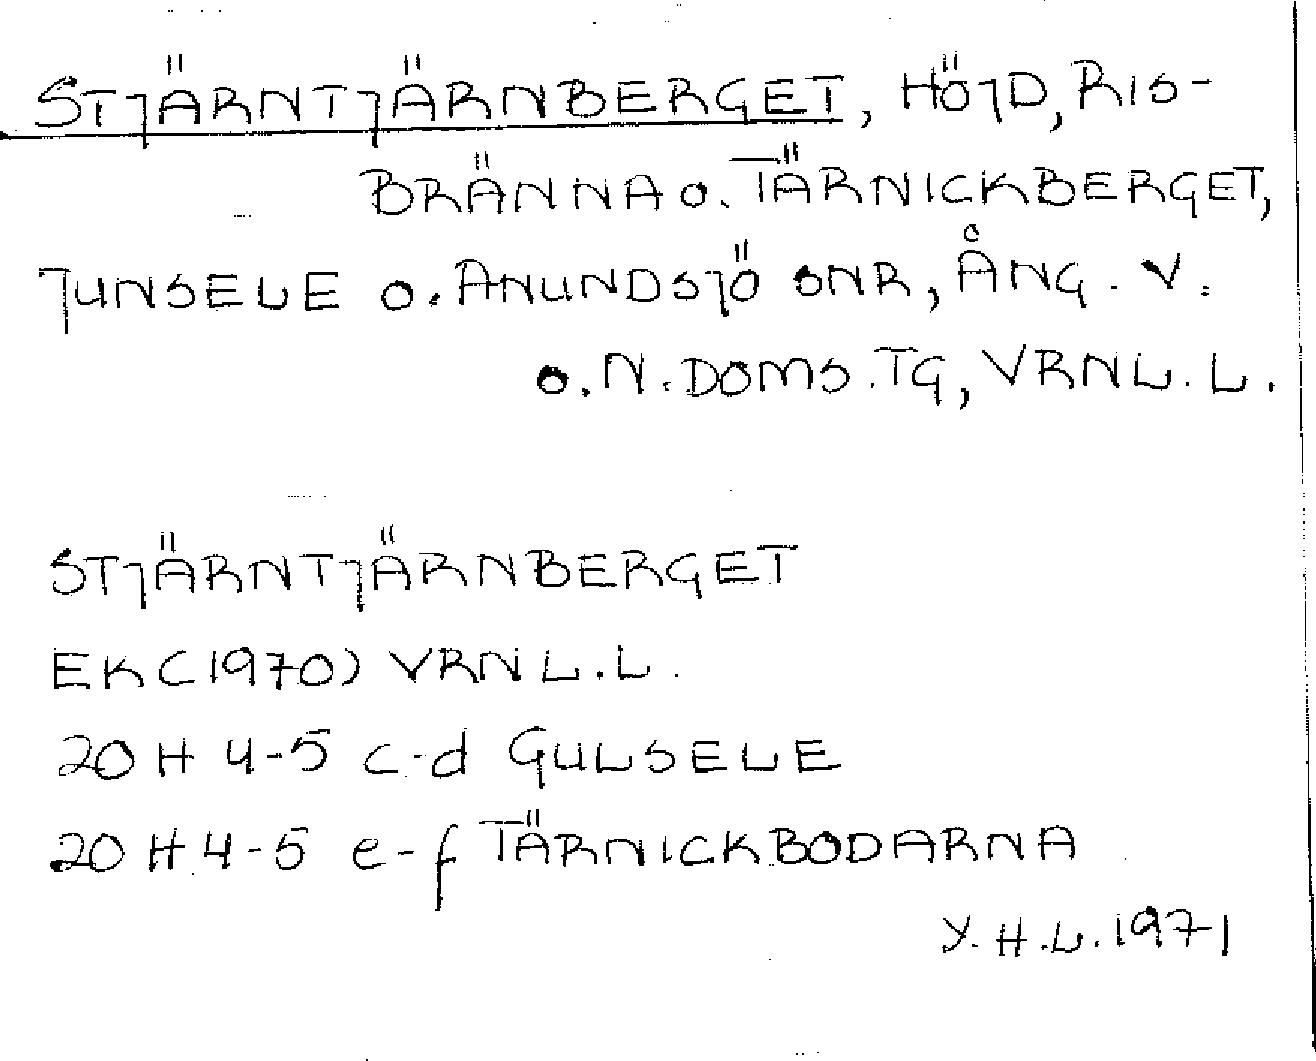 STJÄRNTJÄRNBERGET, HÖJD, RIS-
BRÄNNA o. TÄRNICKBERGET,
JUNSELE o. ANUNDSJÖ SNR, ÅNG. V.
o. N. DOMS. TG, VRNL. L.
STJÄRNTJÄRNBERGET
EK (1970) VRNL. L.
20 H 4-5 c-d GULSELE
20 H 4-5 e-f TÄRNICKBODARNA
Y. H. L. 1971